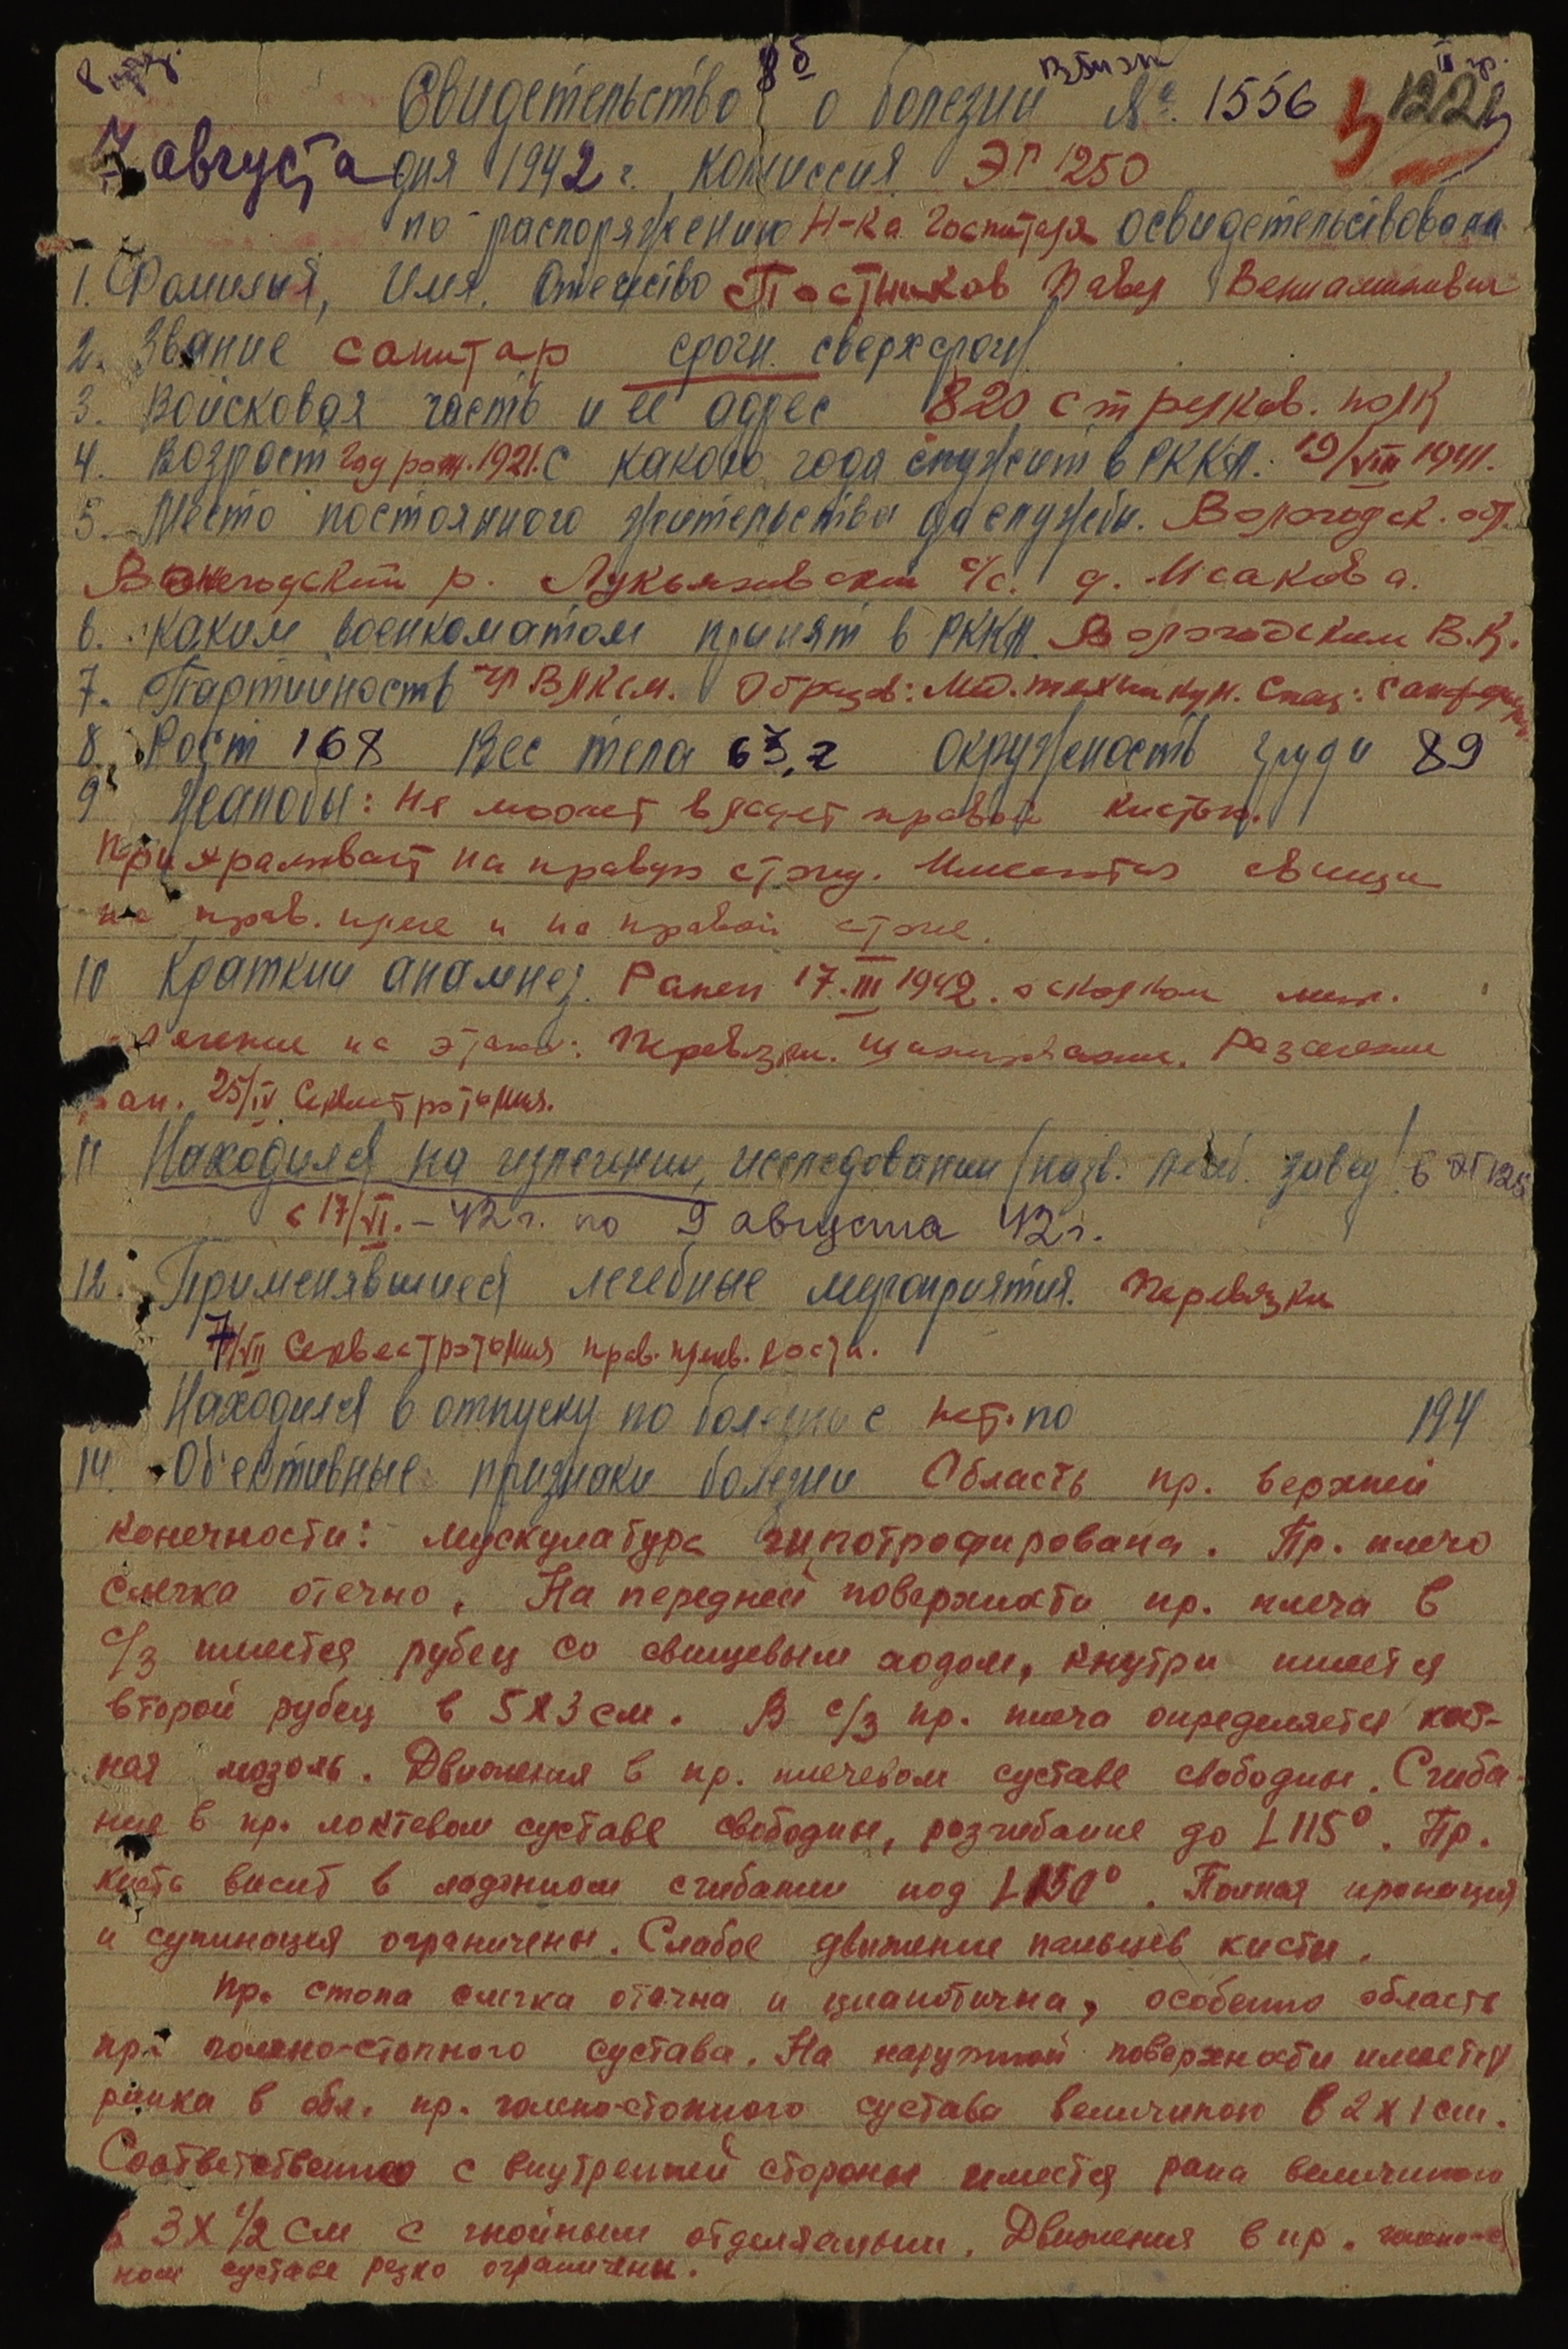 8б II гр.
Свидетельство о болезни № 1556 1221
7 августа дня 1942 г. комиссия ЭГ 1250
по распоряжению Н-ка Госпиталя освидетельствовала
1. Фамилия, Имя. Отечество Постников Павел Вениаминович
2. Звание санитар срочн. сверхсрочн
3. Войсковая часть и ее адрес 820 стрелков. полк
4. Возраст год рож. 1921. С какого года служит в РККА. 19/VIII 1941.
5. Место постоянного жительства до службы. Вологодск. обл.
Вожегодский р. Лукьяновский с/с. д. Исаково.
6. Каким военкоматом принят в РККА. Вологодским В.К.
7. Партийность чл ВЛКСМ. Образов: Мед. техникум. Спец:
8. Рост 168 Вес тела 63,2 окружность груди 89
9 Жалобы: Не может владеть правой кистью.
Прихрамывает на правую стопу. Имеются свищи
на прав. плече и на правой стопе.
10 Краткий анамнез. Ранен 17.III 1942. осколком мин.
Лечение на этапе: Перевязки. Шинирование. Рассечение
ран. 25/IV Секвестротомия.
11 Находился на излечении, исследовании (назв. лечеб. завед) в ЭГ 125
с 17/VI. – 42 г. по 9 августа 42 г.
12. Применявшиеся лечебные мероприятия. Перевязки
7/VII Секвестротомия прав. плечев. кости.
Находился в отпуску по болезни с нет. по 194
14. Об'ективные признаки болезни Область пр. верхней
конечности: мускулатура гипотрофирована. Пр. плечо
слегка отечно. На передней поверхности пр. плеча в
с/3 имеется рубец со свищевым ходом, кнутри имеется
второй рубец в 5х3 см. В с/3 пр. плеча определяется кост-
ная мозоль. Движения в пр. плечевом суставе свободны. Сгиба-
ние в пр. локтевом суставе свободны, разгибание до L 115°. Пр.
кисть висит в ладонном сгибании под L 130°. Полная пронация
и супинация ограничены. Слабое движение пальцев кисти.
Пр. стопа слегка отечна и цианотична, особенно область
пр. голено-стопного сустава. На наружной поверхности имеется
ранка в обл. пр. голено-стопного сустава величиною в 2 х 1 см.
Соответственно с внутренней стороны имеется рана величиною
в 3 х 1/2 см с гнойным отделяемым. Движения в пр. голено-с
ном суставе резко ограничены.